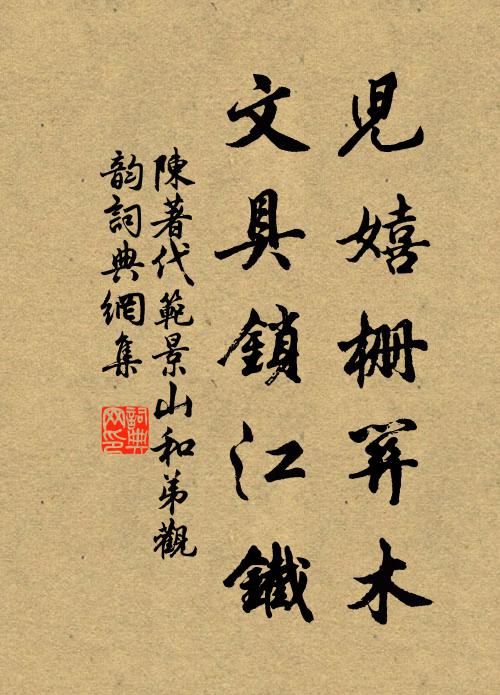 兒嬉柵笄木
文具鎖江鐵
陳著代範景山和弟觀
韵詞典網集
詞典
网印